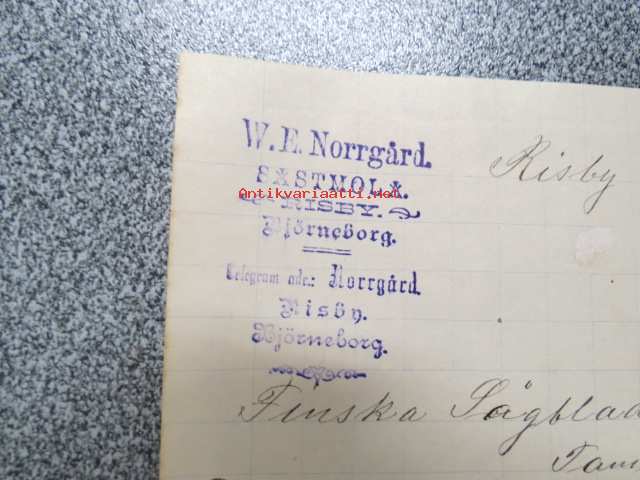 W. E. Norrgård.
Risby
SASTMOLA.
Antikvariaatti.net
RISBY.
Björneborg.
Telegram adr.: Norrgård.
Risby.
Björneborg.
Finska Sågblad
Tam